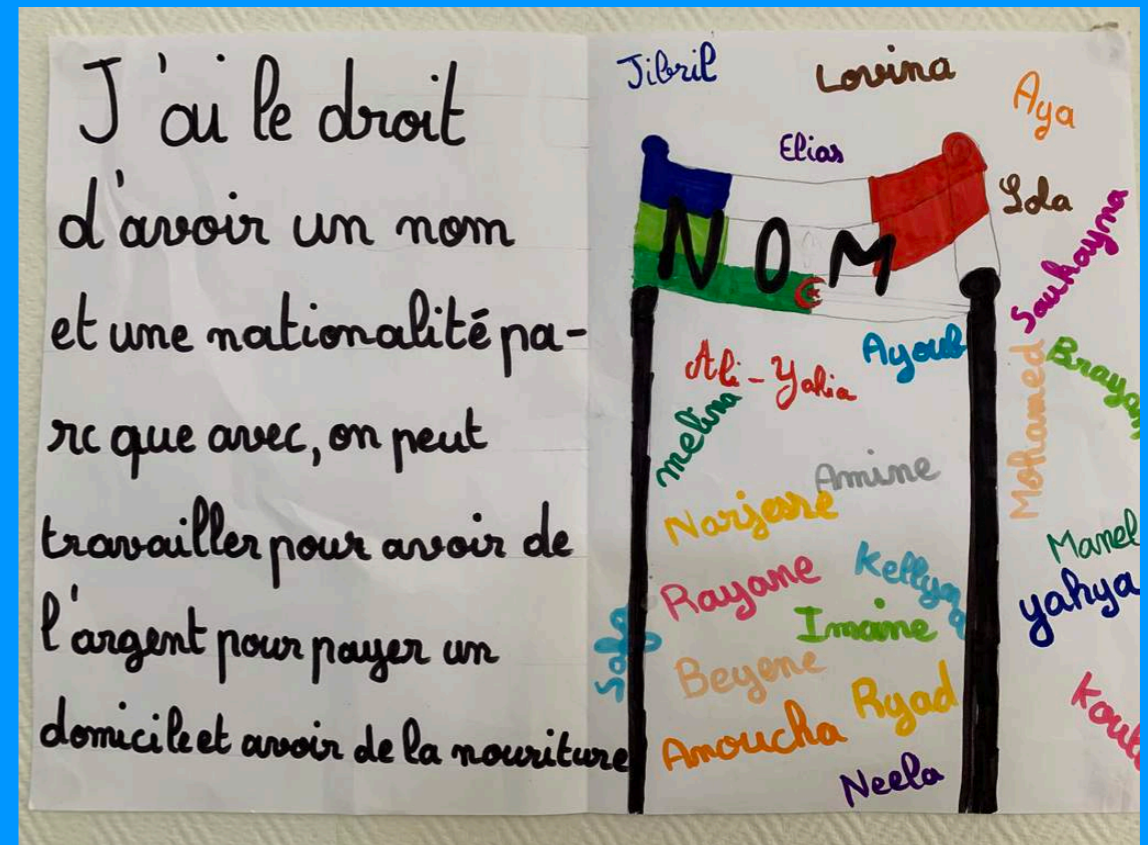 J'ai le droit
d'avoir un nom
et une nationalité pa-
rc que avec, on peut
travailler pour avoir de
l'argent pour payer un
domicile et avoir de la nouriture
Jibril
Lovina
Aya
Elias
Lola
NOM
Soukayna
Ayoub
Ali-Yahia
Brayan
melina
Mohamed
Amine
Narjesse
Manel
Rayane
Kellya
yahya
Imaine
Beyene
Ryad
Anoucha
Neela